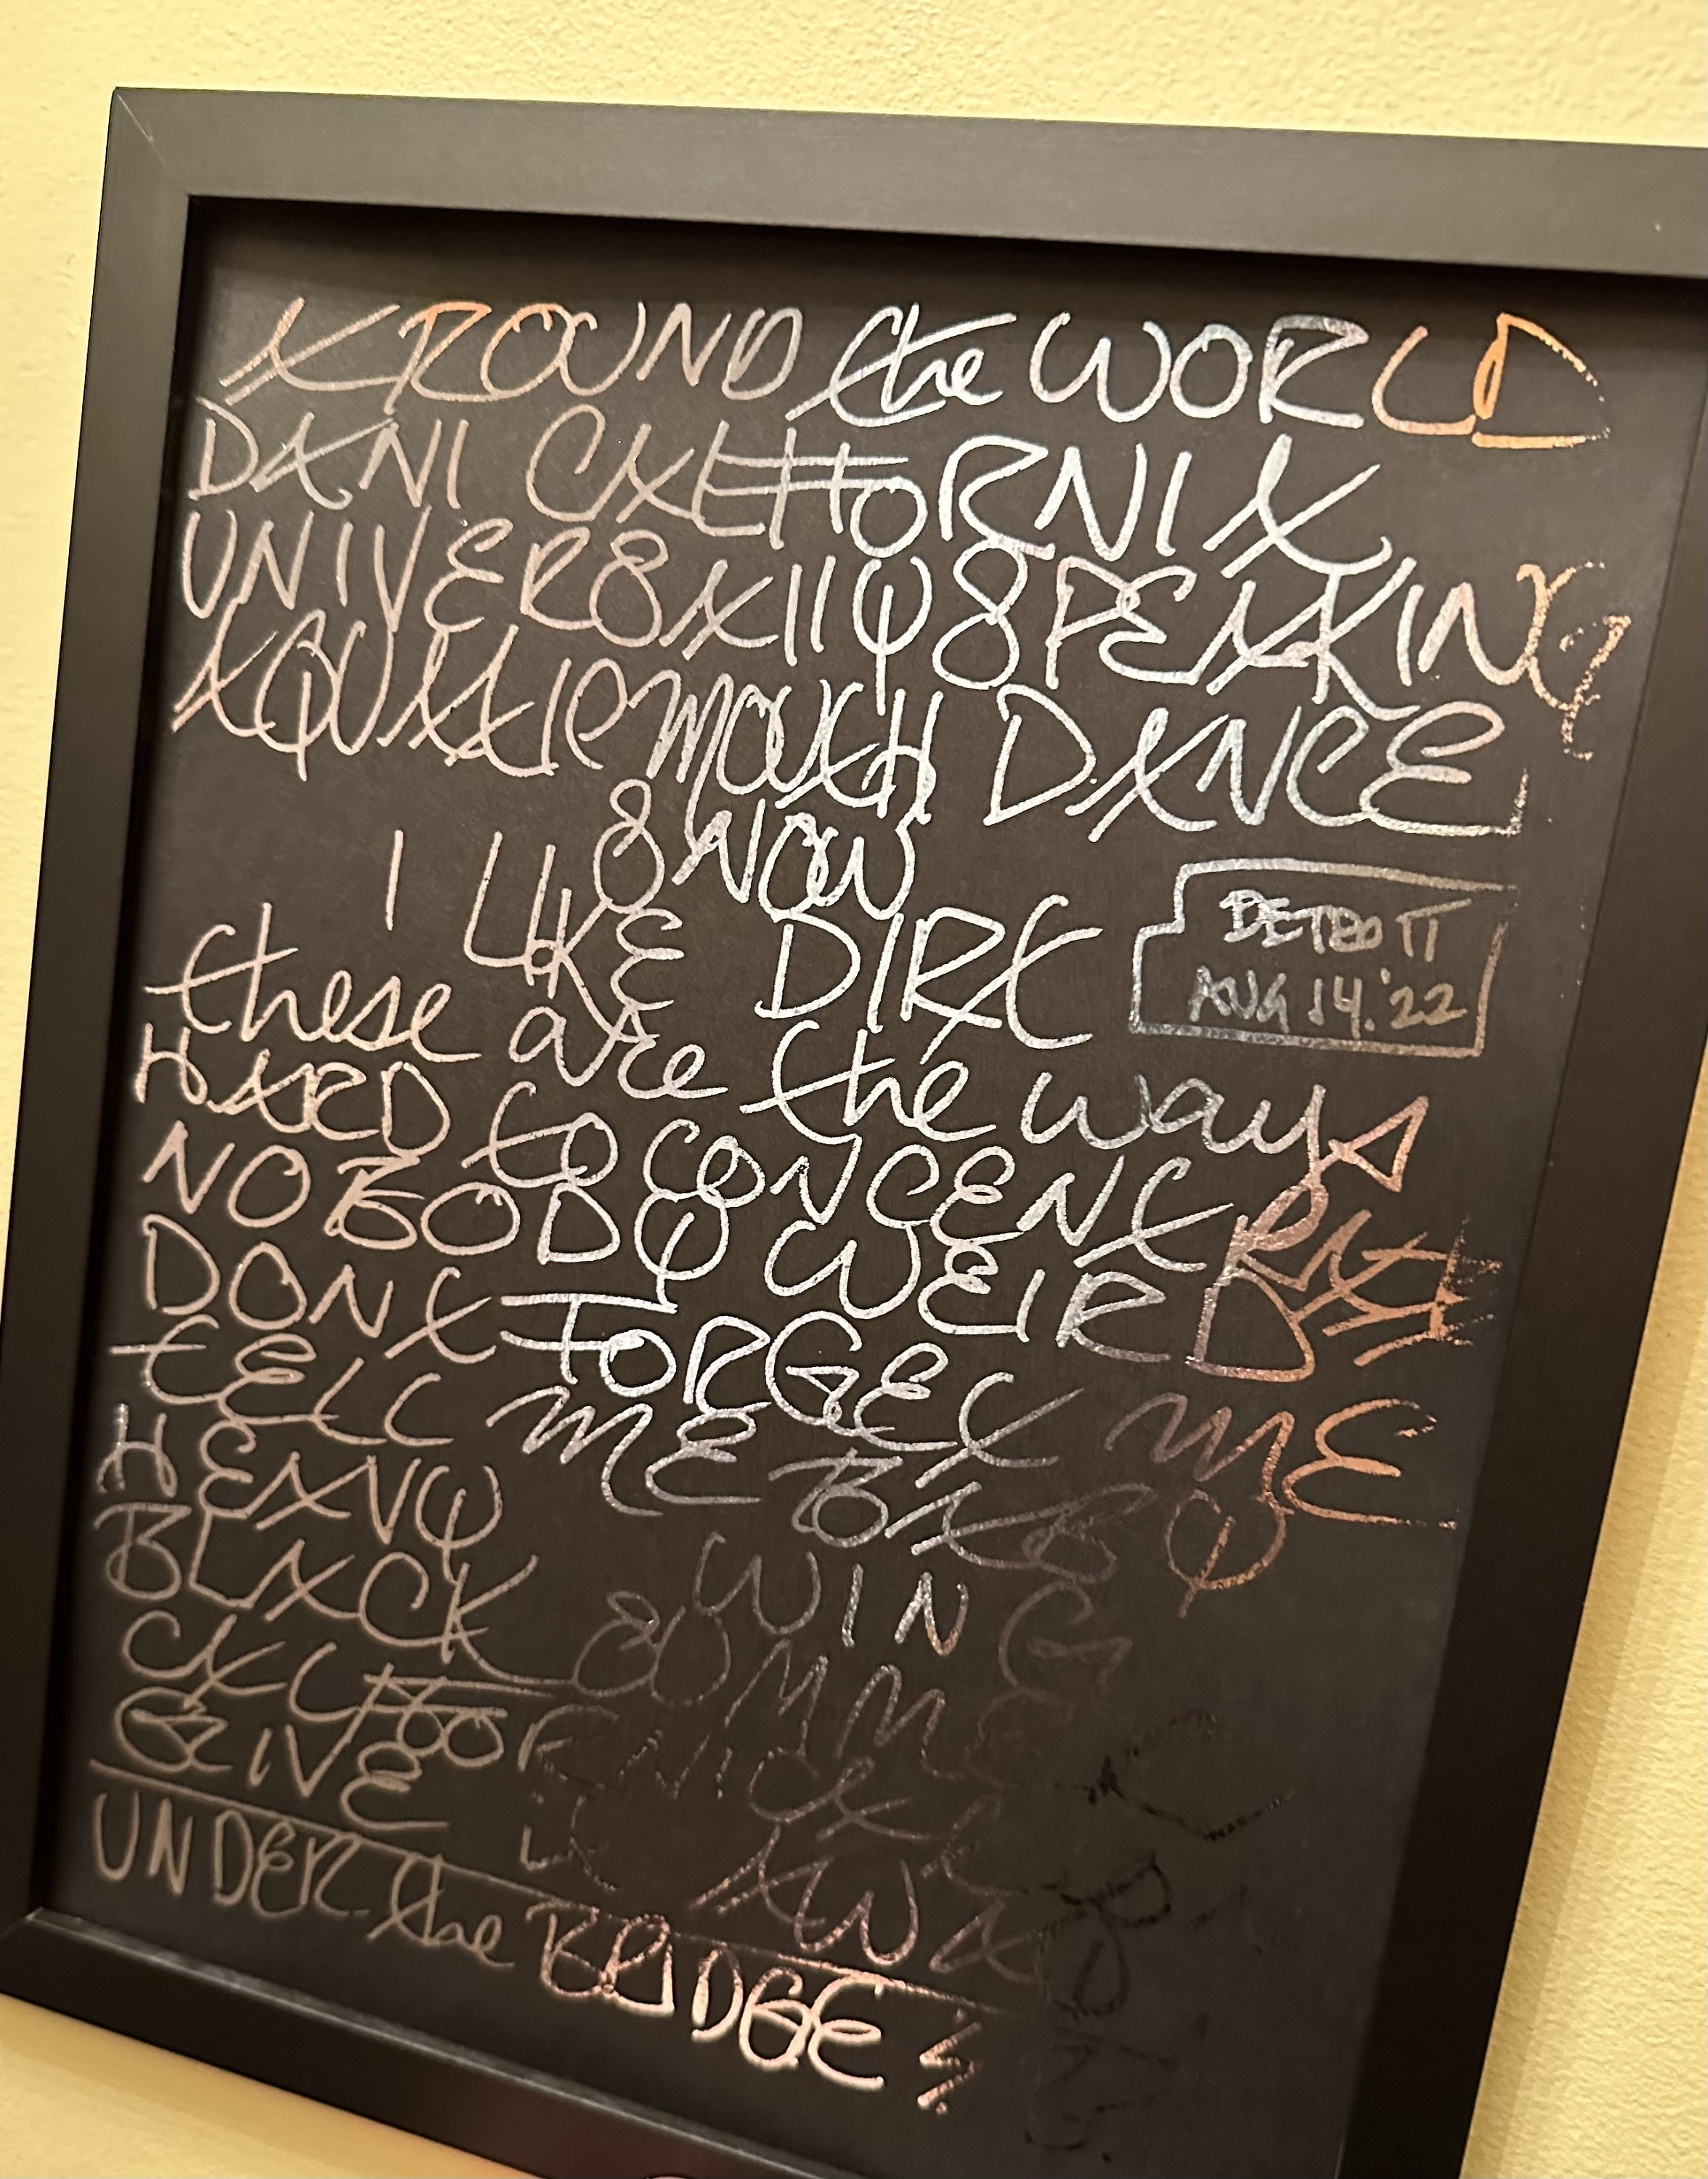 AROUND the WORLD
DANI CALIFORNIA
UNIVERSALLY SPEAKING
AQUATIC MOUTH DANCE
SNOW
I LIKE DIRT
DETROIT
AUG 14.'22
these are the ways
HARD to CONCENTRATE
NOBODY WEIRD
DONT FORGET ME
TELL ME BABY
HEAVY WING
BLACK SUMMER
CALIFORNICATION
GIVE IT AWAY
UNDER the BRIDGE